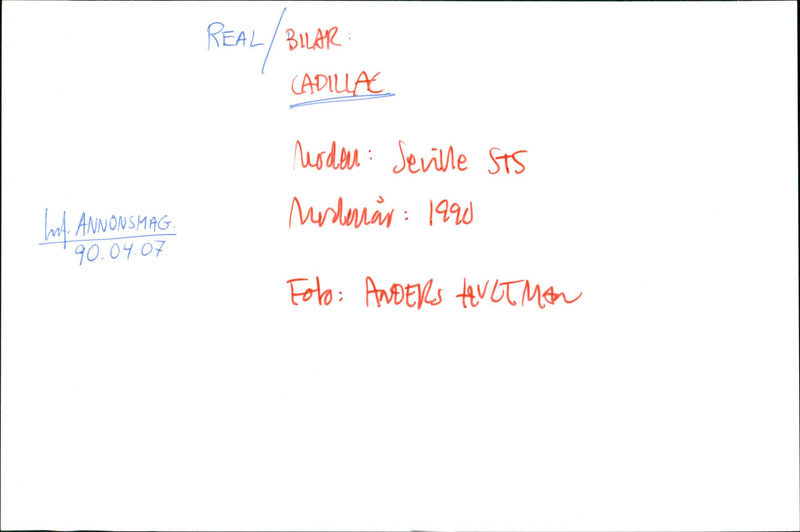 REAL/BILAR:
CADILLAC
Modell: Seville STS
Modellår: 1990
Inf. ANNONSMAG.
90.04.07
Foto: ANDERS HULTMAN